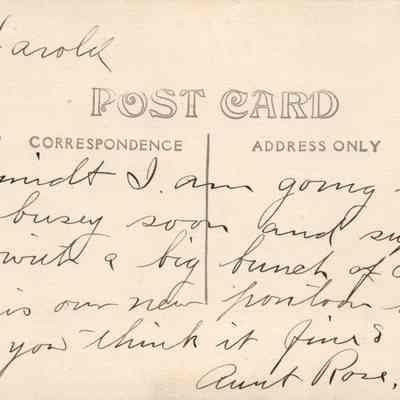 Harold
POST CARD
CORRESPONDENCE ADDRESS ONLY
I am going
busey soon and
with a big bunch of
is our new pontoon
you think it fine?
Aunt Rose.